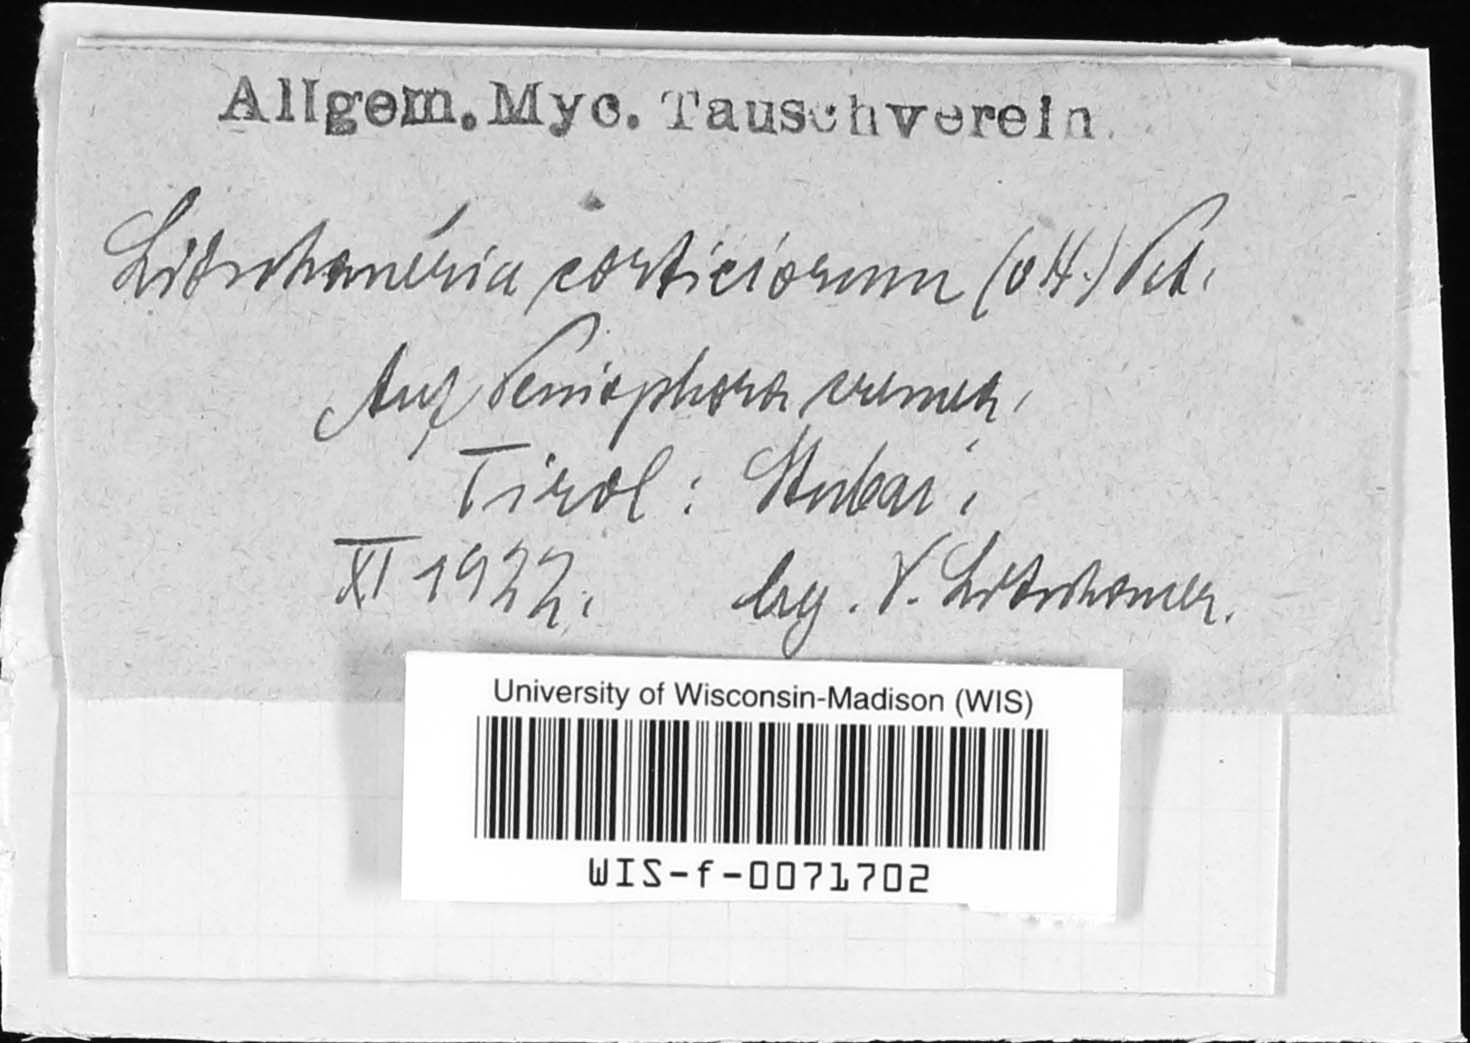 Allgem. Myc. Tauschverein.
Litschaueria corticiorum (v H.) Pet.
Auf Peniophora cremea,
Tirol: Stubai,
XI 1922. leg. V. Litschauer.
University of Wisconsin-Madison (WIS)
WIS-f-0071702